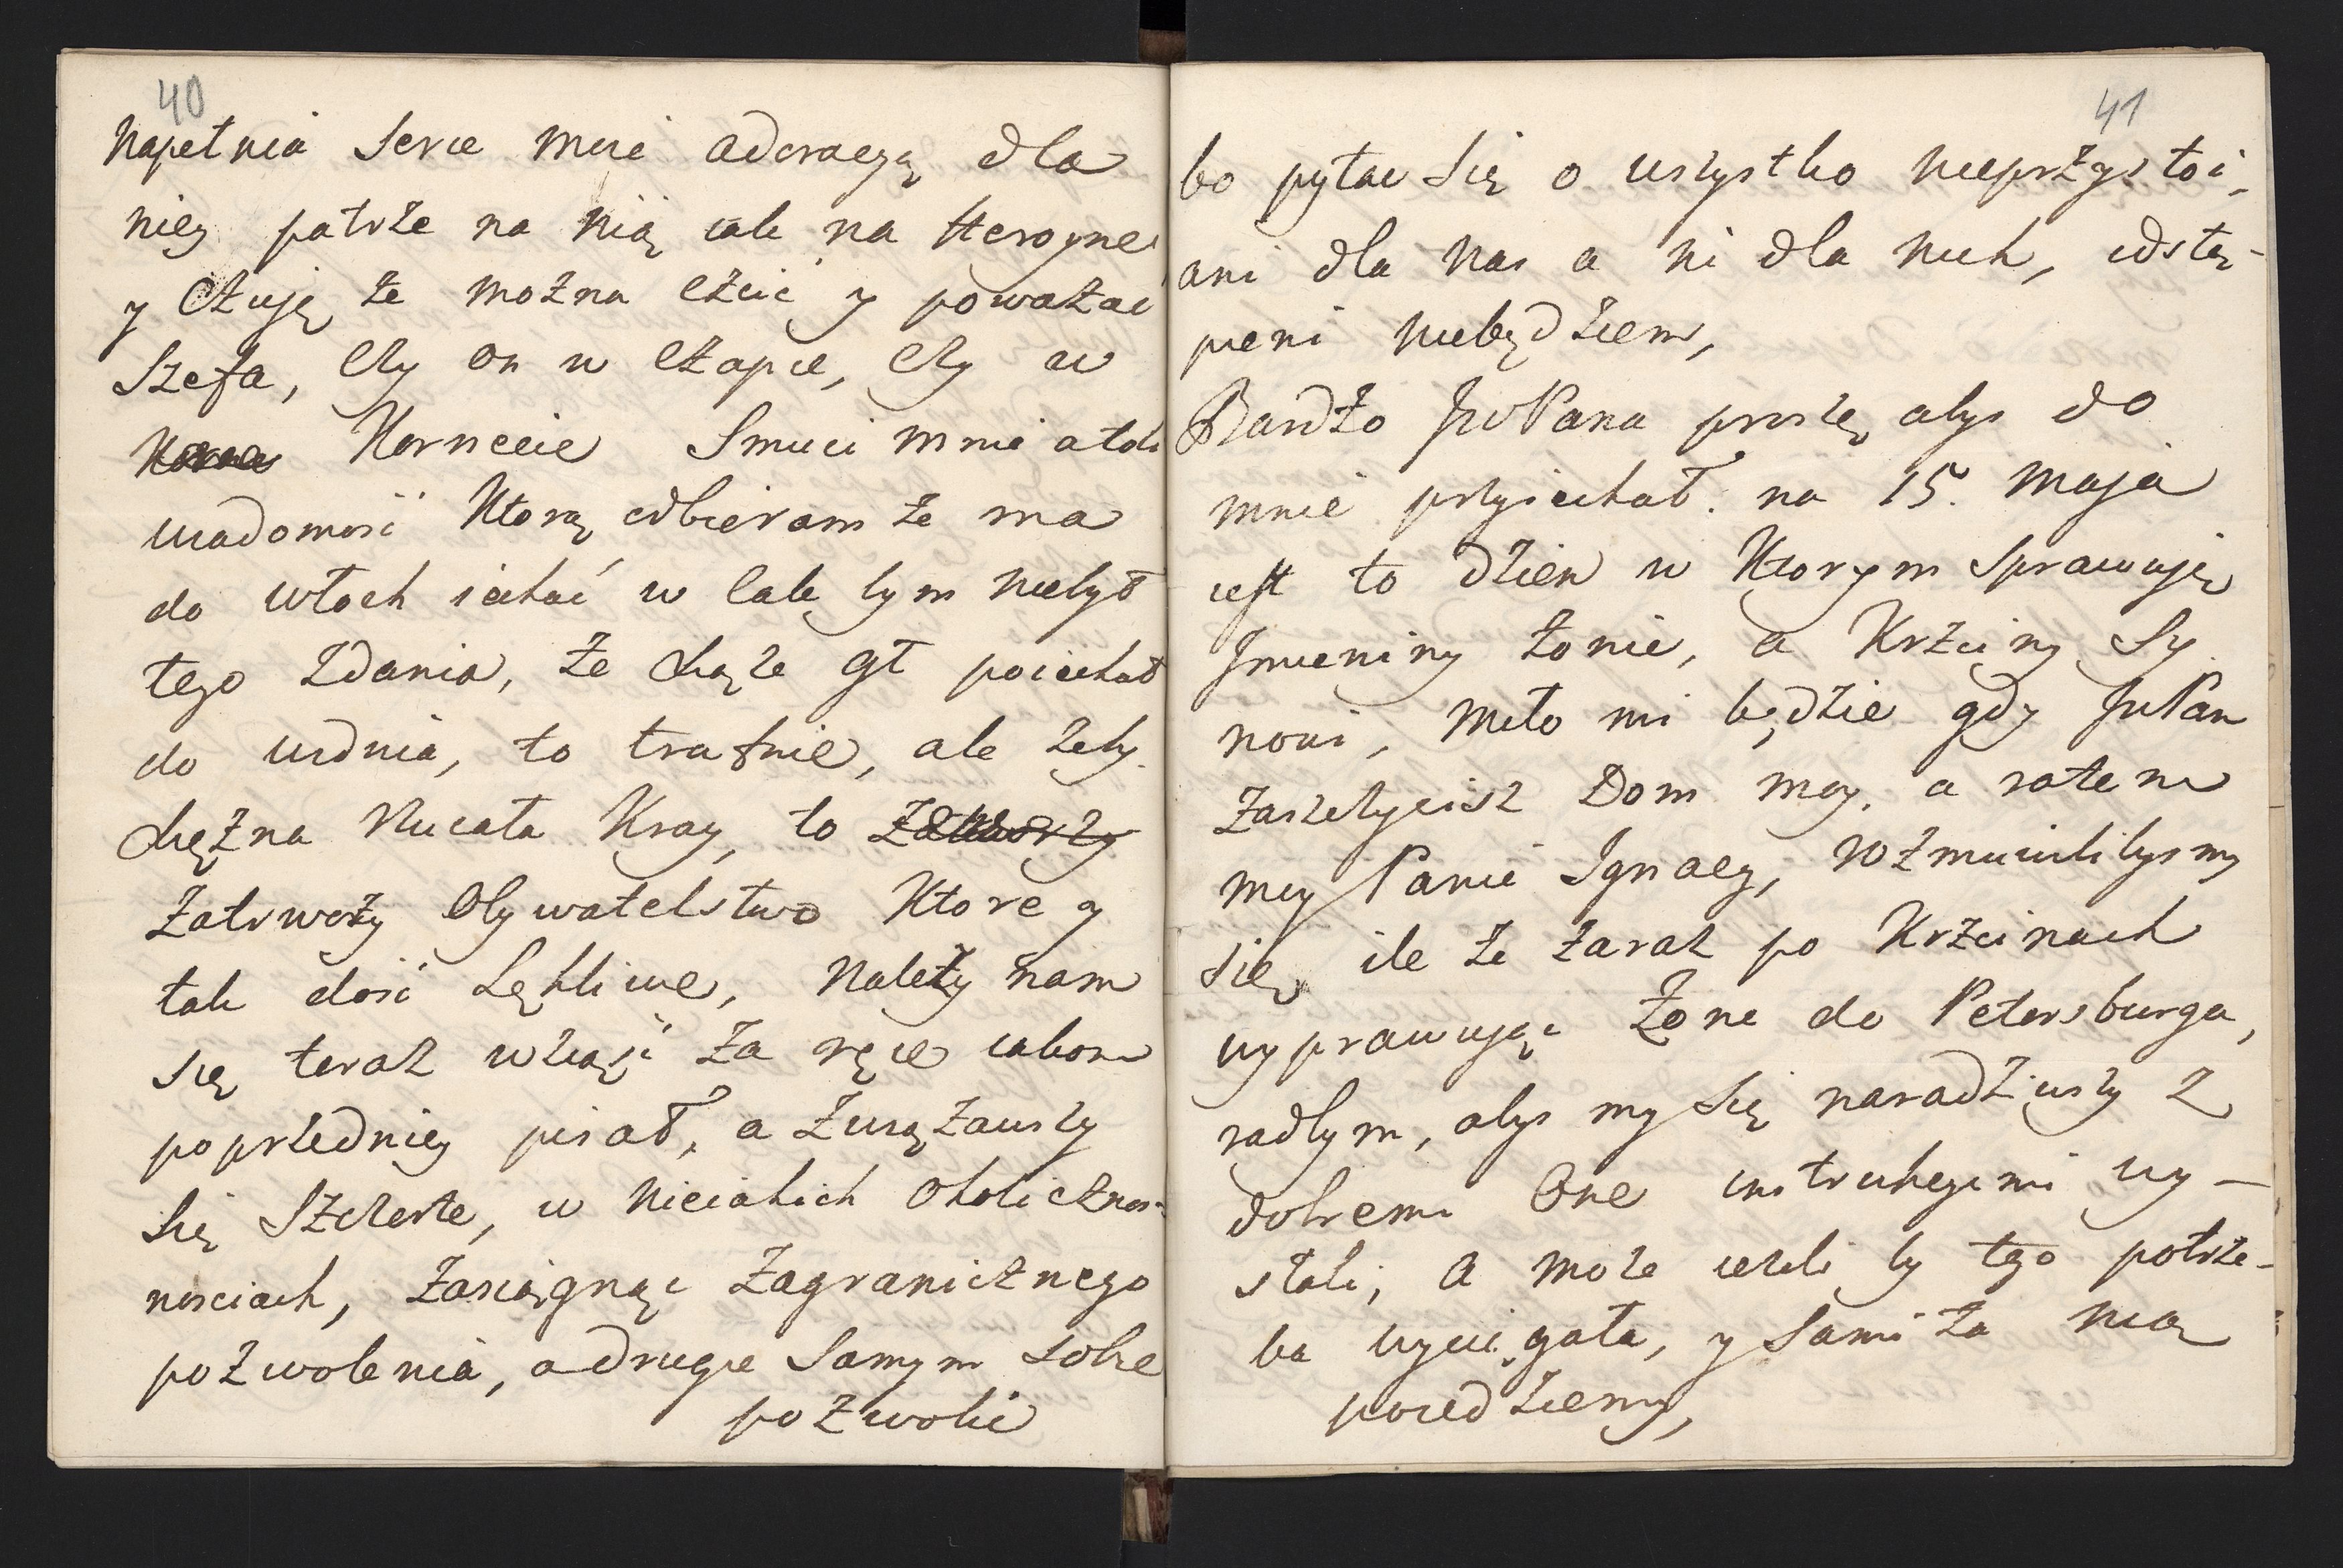 40
Napełnia Serce moie adoracyą dla
niey patrze na Nią iak na Heroyne
y Czuję że można czcić y poważać
Szefa, czy on w czapce, czy w
Kornecie Smuci mnie
wiadomość Ktorą odbieram że ma
do włoch iechać w cale bym niebył
tego zdania, że Xiąże gł poiechał
do widnia, to trafnie, ale żeby
Xiężna Rucała Kray, to
zatrwoży Obywatelstwo Ktore y
tak dość Lękliwe, Należy nam
się teraz wziąść za ręce iakom
poprzedniey pisał, a związawszy
Się Szczerze, w nieiakich Okoliczno-
nościach, zasiągnąć zagranicznego
pozwolenia, a drugie Samym sobie
pozwolić
41
bo pytać Się o wszystko nieprzystoi,
ani dla Nas a ni dla Nich, odstą-
pieni niebędziem,
Bardzo JWPana proszę abyś do
mnie przyiechał. na 15. Maja
iest to dzień w Ktorym Sprawuję
Imieniny żonie, a Krzciny Sy
nowi, Miło mi będzie gdy JWPan
zaszczycisz Dom moy. a zatem
moy Panie Ignacy, rozmuwilibysmy
się, ile że zaraz po Krzcinach
wyprawując żone do Petersburga,
radbym, abyś my Się naradziwszy z
dobremi One instrukcyami wy-
słali, a może ieżeli by tego potrze-
ba wyciągała, y Sami za nią
poiedziemy,